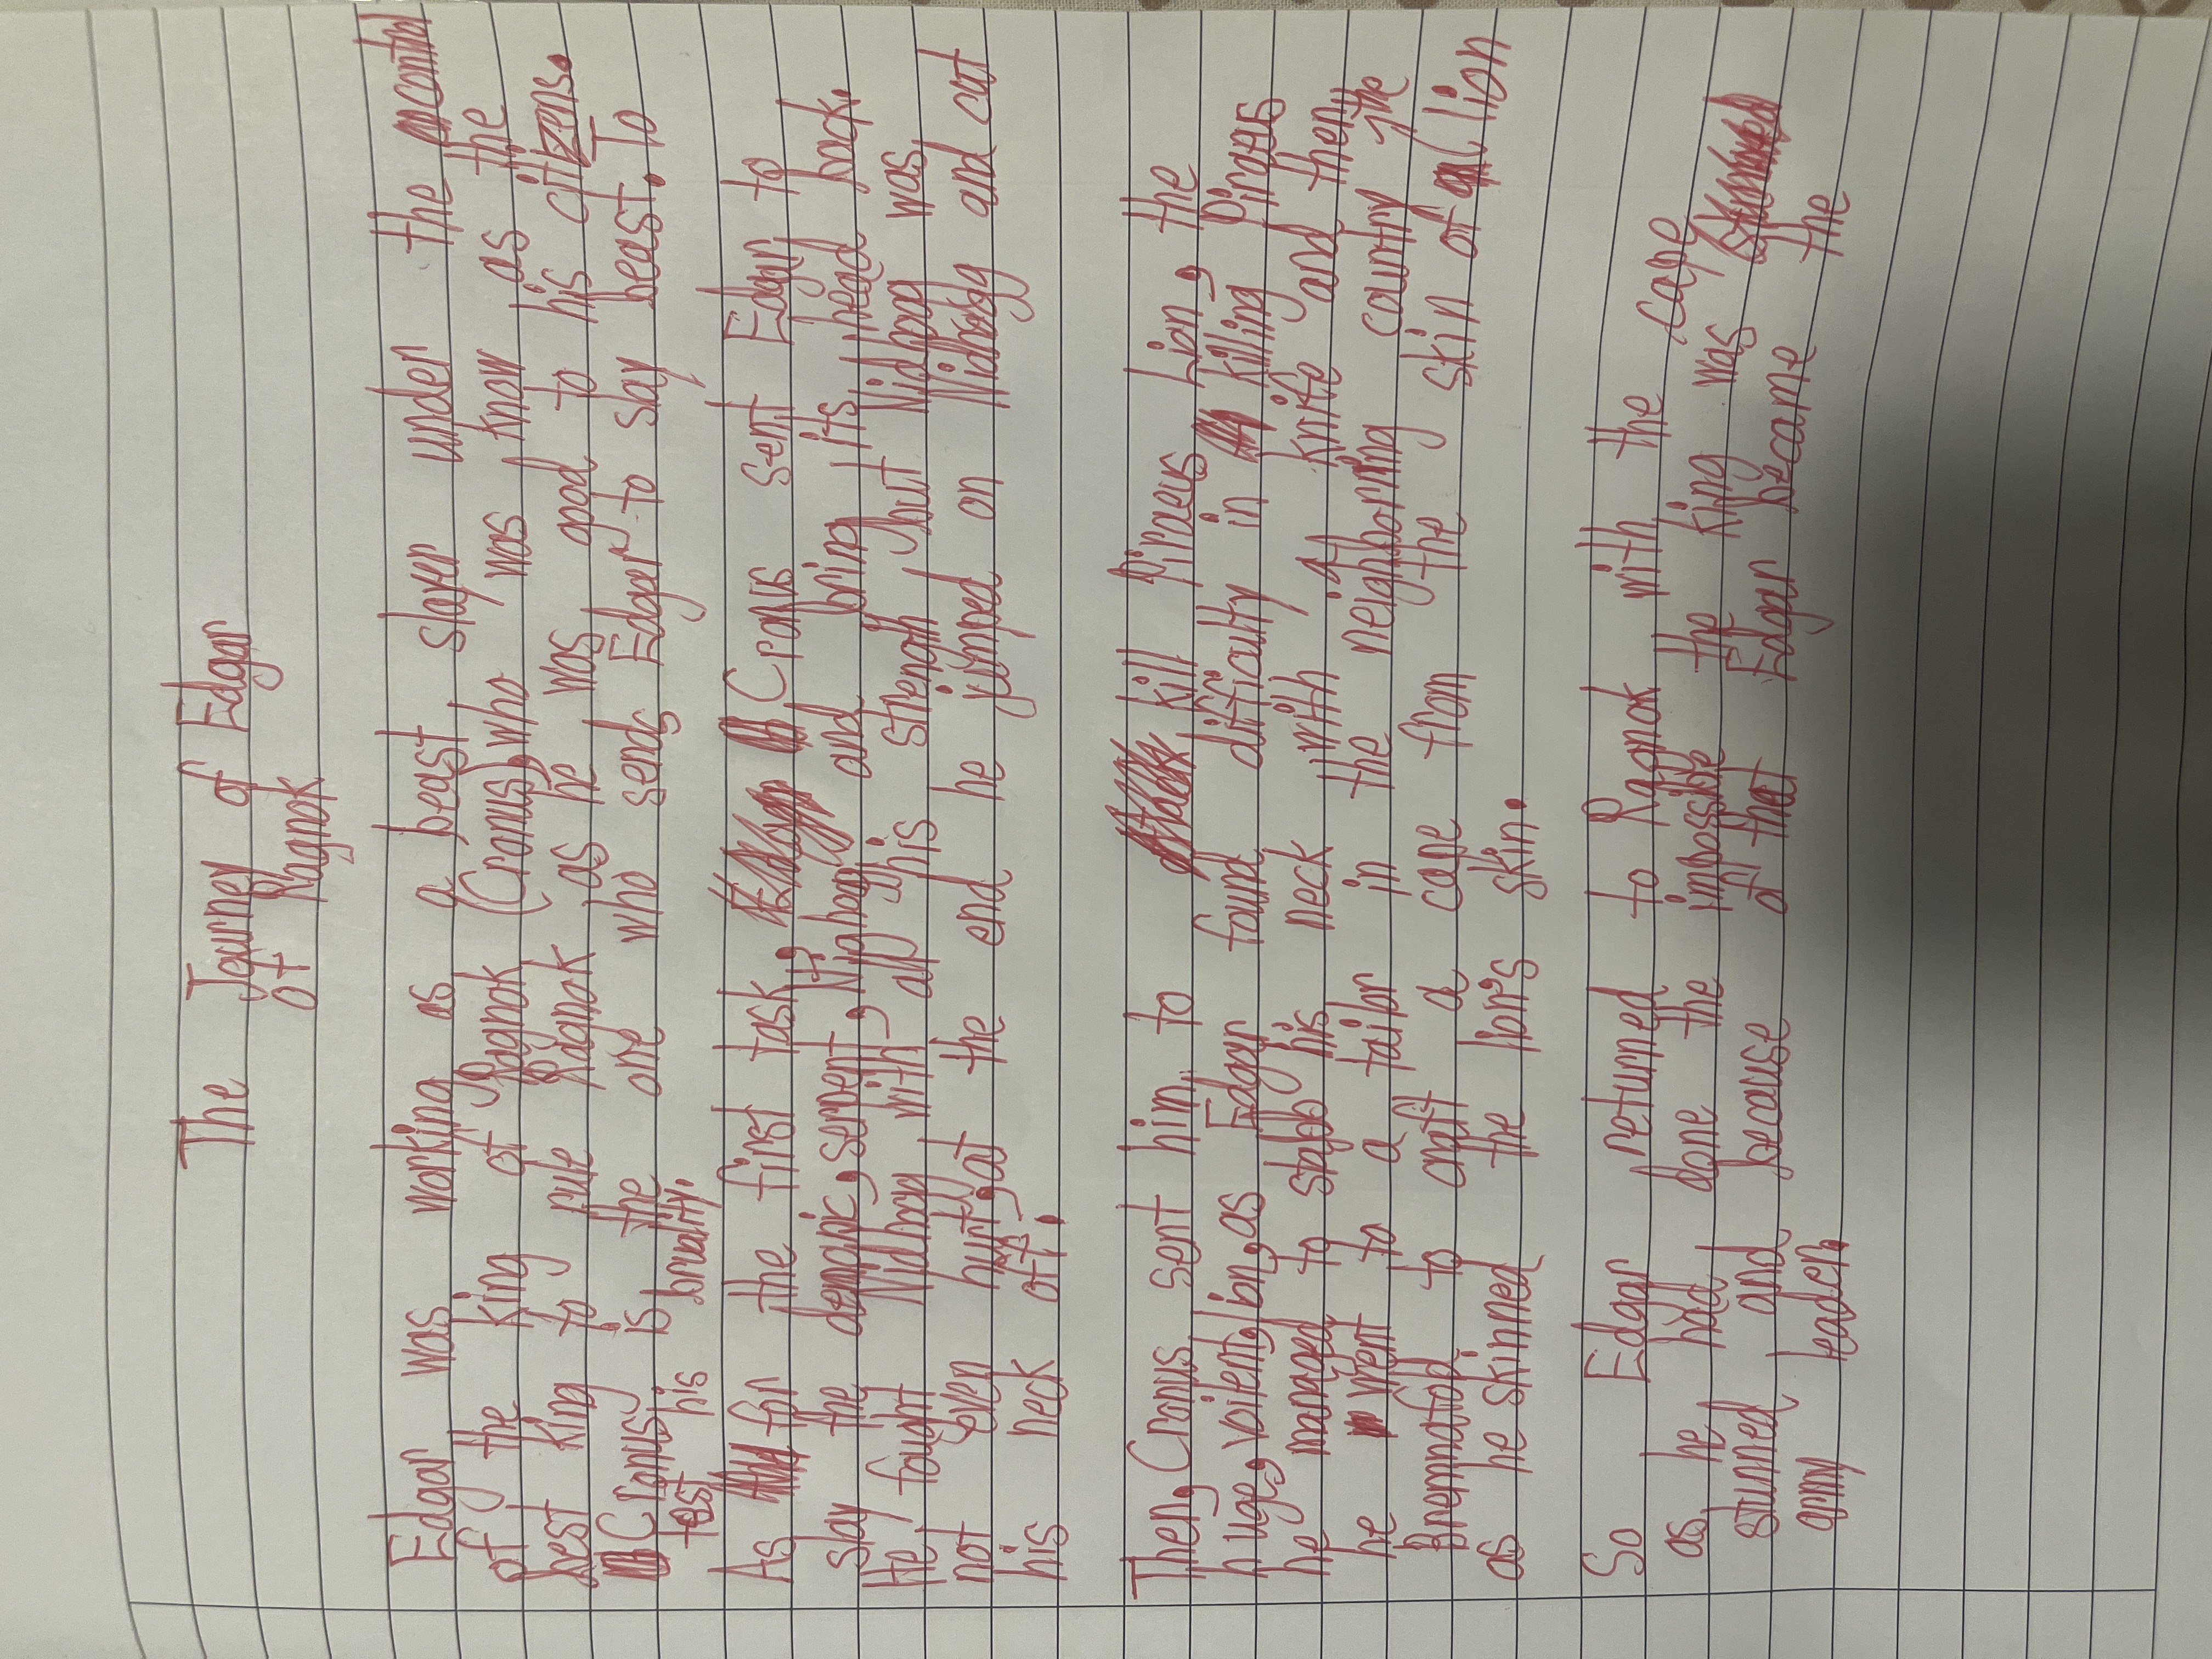 The Journey of Edgar
of Ragnok
Edgar was working as a beast slayer under the
of the king of Ragnok (Cronus), who was know as the
best king to rule Ragnok as he was good to his citizens.
Cronus is the one who sends Edger to slay beast. To
test his brutality.
As for the first task, Cronus sent Edgar to
slay the demonic, serpent, Nighogg and bring its head back.
He fought Nidhogg with all his strength but Nidhogg was
not even hurt, at the end he jumped on Nidhogg and cut
his neck off.
Then, Cronus sent him to kill Piraeus Lion, the
huge, voilent, lion, as Edgar found difficulty in killing Piraeus
he managed to stabb his neck with a knife and then,
he went to a tailor in the neighboring country the
to craft a cape from the skin of lion
as he skinned the lion's skin.
So Edgar returned to Ragnok with the cape
as he had done the impossible the king was
stunned and because of that Edgar became the
army leader.